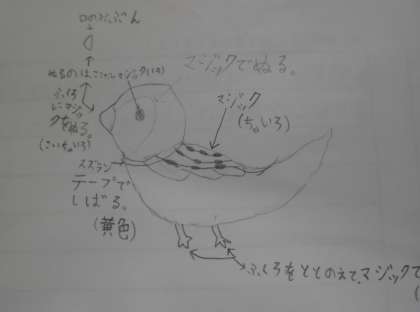 口のぶぶん
ぬるのはここだけマジック(くろ)
マジックでぬる。
ふくろ
にマジッ
クをぬる。
(こいちゃいろ)
マジック
(ちゃいろ)
スズラン
テープで
しばる。
(黄色)
ふくろをととのえて、マジックで
(